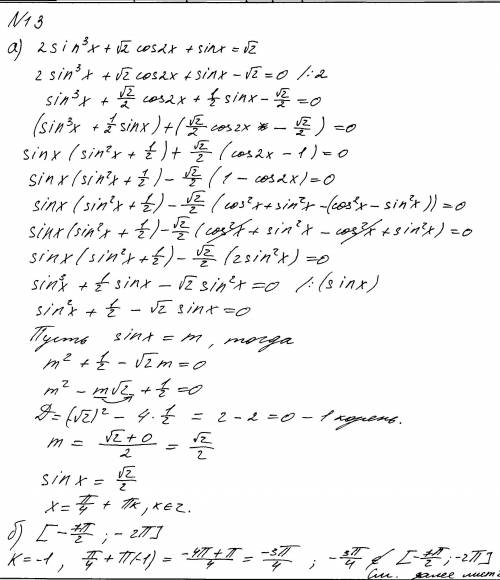 N13
а) 2sin³x + √2 cos2x + sinx = √2
2 sin³x + √2 cos2x + sinx - √2 = 0 /:2
sin³x + √2/2 cos2x + 1/2 sinx - √2/2 = 0
(sin³x + 1/2 sinx) + (√2/2 cos2x - √2/2) = 0
sinx (sin²x + 1/2) + √2/2 (cos2x - 1) = 0
sinx (sin²x + 1/2) - √2/2 (1 - cos2x) = 0
sinx (sin²x + 1/2) - √2/2 (cos²x + sin²x - (cos²x - sin²x)) = 0
sinx (sin²x + 1/2) - √2/2 (cos²x + sin²x - cos²x + sin²x) = 0
sinx (sin²x + 1/2) - √2/2 (2sin²x) = 0
sin³x + 1/2 sinx - √2 sin²x = 0 /:(sinx)
sin²x + 1/2 - √2 sinx = 0
Пусть sinx = m, тогда
m² + 1/2 - √2m = 0
m² - m√2 + 1/2 = 0
D = (√2)² - 4 · 1/2 = 2 - 2 = 0 - 1 корень.
m = (√2 + 0)/2 = √2/2
sinx = √2/2
x = π/4 + πk, k∈z.
б) [-7π/2 ; -2π]
k = -1, π/4 + π(-1) = (-4π + π)/4 = -3π/4 ; -3π/4 ∉ [-7π/2 ; -2π]
См. далее лист